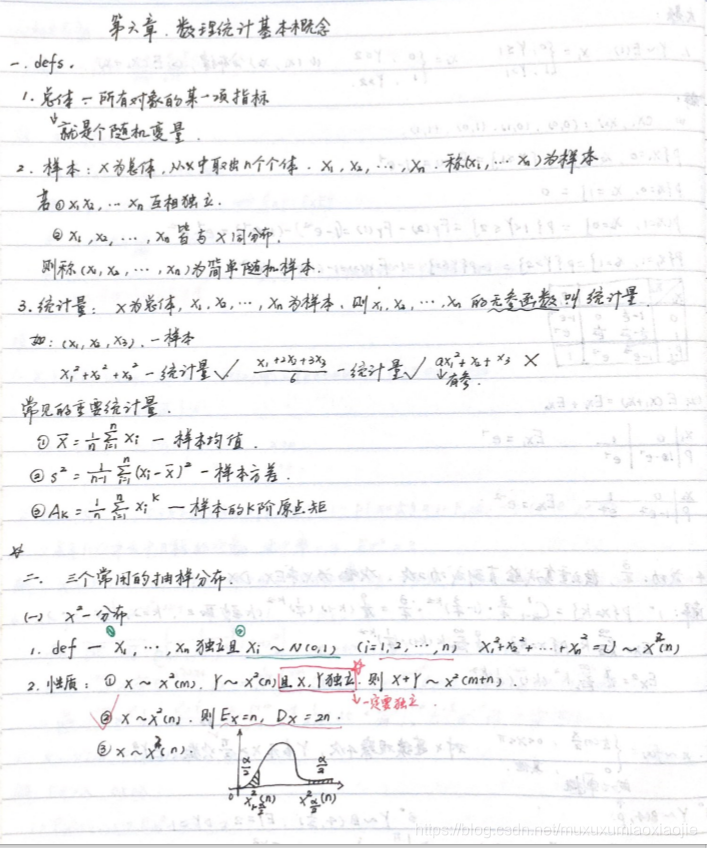 第六章. 数理统计基本概念
一. defs.
1. 总体 — 所有对象的某一项指标
就是个随机变量.
2. 样本: X为总体, 从X中取出n个个体. X₁, X₂, …, Xₙ. 称(X₁, … Xₙ)为样本
若① X₁X₂, … Xₙ 互相独立.
② X₁, X₂, …, Xₙ 皆与X同分布.
则称(X₁, X₂, …, Xₙ)为简单随机样本.
3. 统计量: X为总体, X₁, X₂, …, Xₙ为样本. 则X₁, X₂, …, Xₙ 的无参函数叫统计量
如: (X₁, X₂, X₃). — 样本
X₁²+X₂²+X₃² — 统计量 √ (X₁+2X₂+3X₃)/6 — 统计量 √ aX₁²+X₂+X₃ ×
有参.
常见的重要统计量.
① X̄ = 1/n Σᵢ₌₁ⁿ Xᵢ — 样本均值.
② S² = 1/(n-1) Σᵢ₌₁ⁿ (Xᵢ-X̄)² — 样本方差.
③ Aₖ = 1/n Σᵢ₌₁ⁿ Xᵢᵏ — 样本的K阶原点矩
二. 三个常用的抽样分布.
(一) X²-分布
1. def — X₁, …, Xₙ 独立且 Xᵢ ~ N(0,1) (i=1,2,…,n) X₁²+X₂²+…+Xₙ²=U ~ X²(n)
2. 性质: ① X ~ X²(m), Y ~ X²(n) 且X,Y独立. 则 X+Y ~ X²(m+n).
一定要独立
② X ~ X²(n). 则 EX=n, DX=2n.
③ X ~ X²(n).
α/2 α/2
0 X²₁₋α/₂(n) X²α/₂(n)
https://blog.csdn.net/muxuxumiaoxiaojie